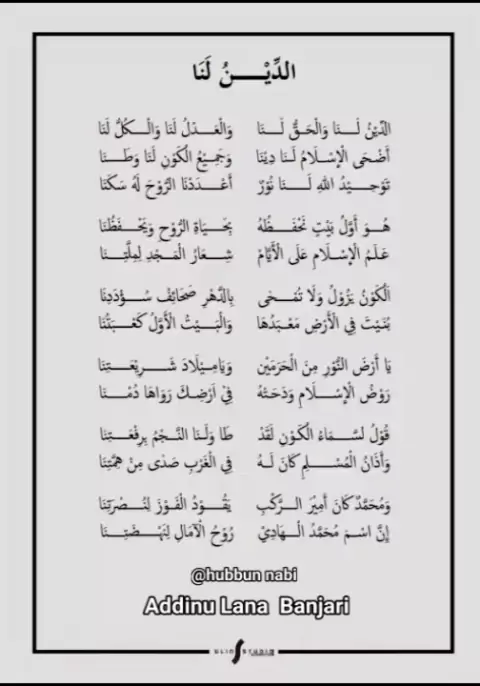 الدِّيْـــنُ لَنَا
الدِّيْنُ لَـــنَا وَالْحَقُّ لَـــنَا وَالْعَـــدْلُ لَنَا وَالْـــكُلُّ لَنَا
أَضْحَى الْإِسْلَامُ لَـنَا دِيْنَا وَجَمِيْعُ الْكَوْنِ لَنَا وَطَـــنَا
تَوْحِيْدُ اللهِ لَـــنَا نُوْرٌ أَعْدَدْنَا الرُّوْحَ لَهُ سَكَنَا
هُـــوَ أَوَّلُ بَيْتٍ نَحْفَـــظُهُ بِحَيَاةِ الرُّوْحِ وَيَحْـــفَظُنَا
عَلَمُ الْإِسْلَامِ عَلَى الْأَيَّامِ شِعَارُ الْمَجْدِ لِمِلَّتِـــنَا
اَلْكَوْنُ يَزُوْلُ وَلَا تُمْحَى بِالدَّهْرِ صَحَائِفُ سُـــؤْدَدِنَا
بُنِيَتْ فِي الْأَرْضِ مَعْبَدُهَا وَالْبَيْتُ الْأَوَّلُ كَعْـــبَتُنَا
يَا أَرْضَ النُّوْرِ مِنَ الْحَرَمَيْنِ وَيَامِيْلَادَ شَـــرِيْعَـــتِنَا
رَوْضُ الْإِسْـــلَامِ وَدَحَـــتُهُ فِيْ اَرْضِكِ رَوَاهَا دُمُـــنَا
قُوْلُ لِسَّمَاءُ الْكَوْنِ لَقَدْ طَا وَلَنَا النَّجْمُ بِرِفْعَـــتِنَا
وَأَذَانُ الْمُسْـــلِمِ كَانَ لَـــهُ فِي الْغَرْبِ صَدًى مِنْ هِمَّتِنَا
وَمُحَمَّدٌ كَانَ أَمِيْرَ الـــرَّكْبِ يَقُـــوْدُ الْفَوْزَ لِنُـــصْرَتِنَا
إِنَّ اسْـــمَ مُحَمَّدٍ الْـــهَادِيْ رُوْحُ الْآمَالِ لِنَـــهْضَتِـــنَا
@hubbun nabi
Addinu Lana Banjari